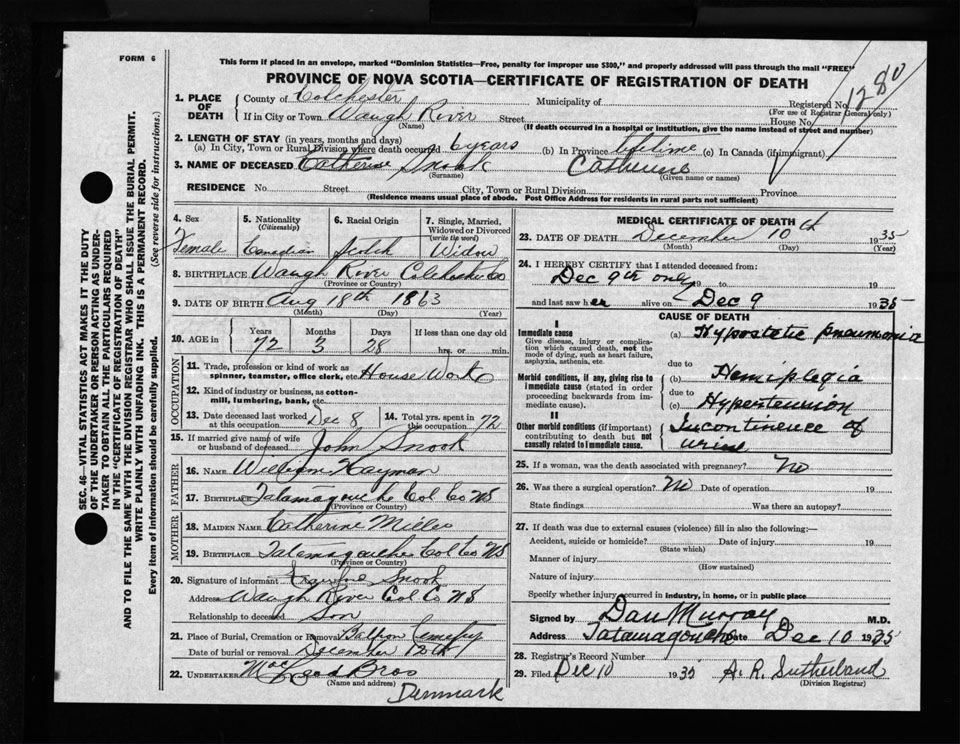 FORM 6
This form if placed in an envelope, marked "Dominion Statistics—Free, penalty for improper use $300," and properly addressed will pass through the mail "FREE"
PROVINCE OF NOVA SCOTIA—CERTIFICATE OF REGISTRATION OF DEATH
1. PLACE OF DEATH County of Colchester Municipality of Registered No. 1280
(For use of Registrar General only)
If in City or Town Waugh River Street House No.
(Name) (If death occurred in a hospital or institution, give the name instead of street and number)
2. LENGTH OF STAY (in years, months and days)
(a) In City, Town or Rural Division where death occurred 6 years (b) In Province lifetime (c) In Canada (if immigrant)
3. NAME OF DECEASED Catherine Snook Catherine
(Surname) (Given name or names)
RESIDENCE No. Street City, Town or Rural Division Province
(Residence means usual place of abode. Post Office Address for residents in rural parts not sufficient)
4. Sex 5. Nationality (Citizenship) 6. Racial Origin 7. Single, Married, Widowed or Divorced (write the word)
Female Canadian Scotch Widow
8. BIRTHPLACE Waugh River Colchester Co
(Province or Country)
9. DATE OF BIRTH Aug 18th 1863
(Month) (Day) (Year)
10. AGE in Years Months Days If less than one day old
72 3 28 hrs. or min.
OCCUPATION
11. Trade, profession or kind of work as spinner, teamster, office clerk, etc. House Work
12. Kind of industry or business, as cotton-mill, lumbering, bank, etc.
13. Date deceased last worked at this occupation Dec 8 14. Total yrs. spent in this occupation 72
15. If married give name of wife or husband of deceased John Snook
FATHER
16. NAME William Hayman
17. BIRTHPLACE Tatamagouche Col Co NS
(Province or Country)
MOTHER
18. MAIDEN NAME Catherine Miller
19. BIRTHPLACE Tatamagouche Col Co NS
(Province or Country)
20. Signature of informant Snook
Address Waugh River Col Co NS
Relationship to deceased Son
21. Place of Burial, Cremation or Removal Balfron Cemetery
Date of burial or removal December 12th
22. UNDERTAKER MacLeod Bros
(Name and address)
Denmark
MEDICAL CERTIFICATE OF DEATH
23. DATE OF DEATH December 10th 1935
(Month) (Day) (Year)
24. I HEREBY CERTIFY that I attended deceased from:
Dec 9th only 19 to 19
and last saw her alive on Dec 9 1935
CAUSE OF DEATH
I
Immediate cause
Give disease, injury or complication which caused death, not the mode of dying, such as heart failure, asphyxia, asthenia, etc.
(a) Hypostatic pneumonia
due to
Morbid conditions, if any, giving rise to immediate cause (stated in order proceeding backwards from immediate cause).
(b) Hemiplegia
due to
(c) Hypertension
II
Other morbid conditions (if important) contributing to death but not causally related to immediate cause.
Incontinence of urine
25. If a woman, was the death associated with pregnancy? No
26. Was there a surgical operation? No Date of operation 19
State findings Was there an autopsy?
27. If death was due to external causes (violence) fill in also the following:—
Accident, suicide or homicide? Date of injury 19
(State which)
Manner of injury
(How sustained)
Nature of injury
Specify whether injury occurred in industry, in home, or in public place
Signed by Dan Murray M.D.
Address Tatamagouche Date Dec 10 1935
28. Registrar's Record Number
29. Filed Dec 10 1935 A. R. Sutherland
(Division Registrar)
SEC. 46—VITAL STATISTICS ACT MAKES IT THE DUTY
OF THE UNDERTAKER OR PERSON ACTING AS UNDERTAKER TO OBTAIN ALL THE PARTICULARS REQUIRED
IN THE "CERTIFICATE OF REGISTRATION OF DEATH"
AND TO FILE THE SAME WITH THE DIVISION REGISTRAR WHO SHALL ISSUE THE BURIAL PERMIT.
WRITE PLAINLY WITH UNFADING INK. THIS IS A PERMANENT RECORD.
Every item of information should be carefully supplied. (See reverse side for instructions.)